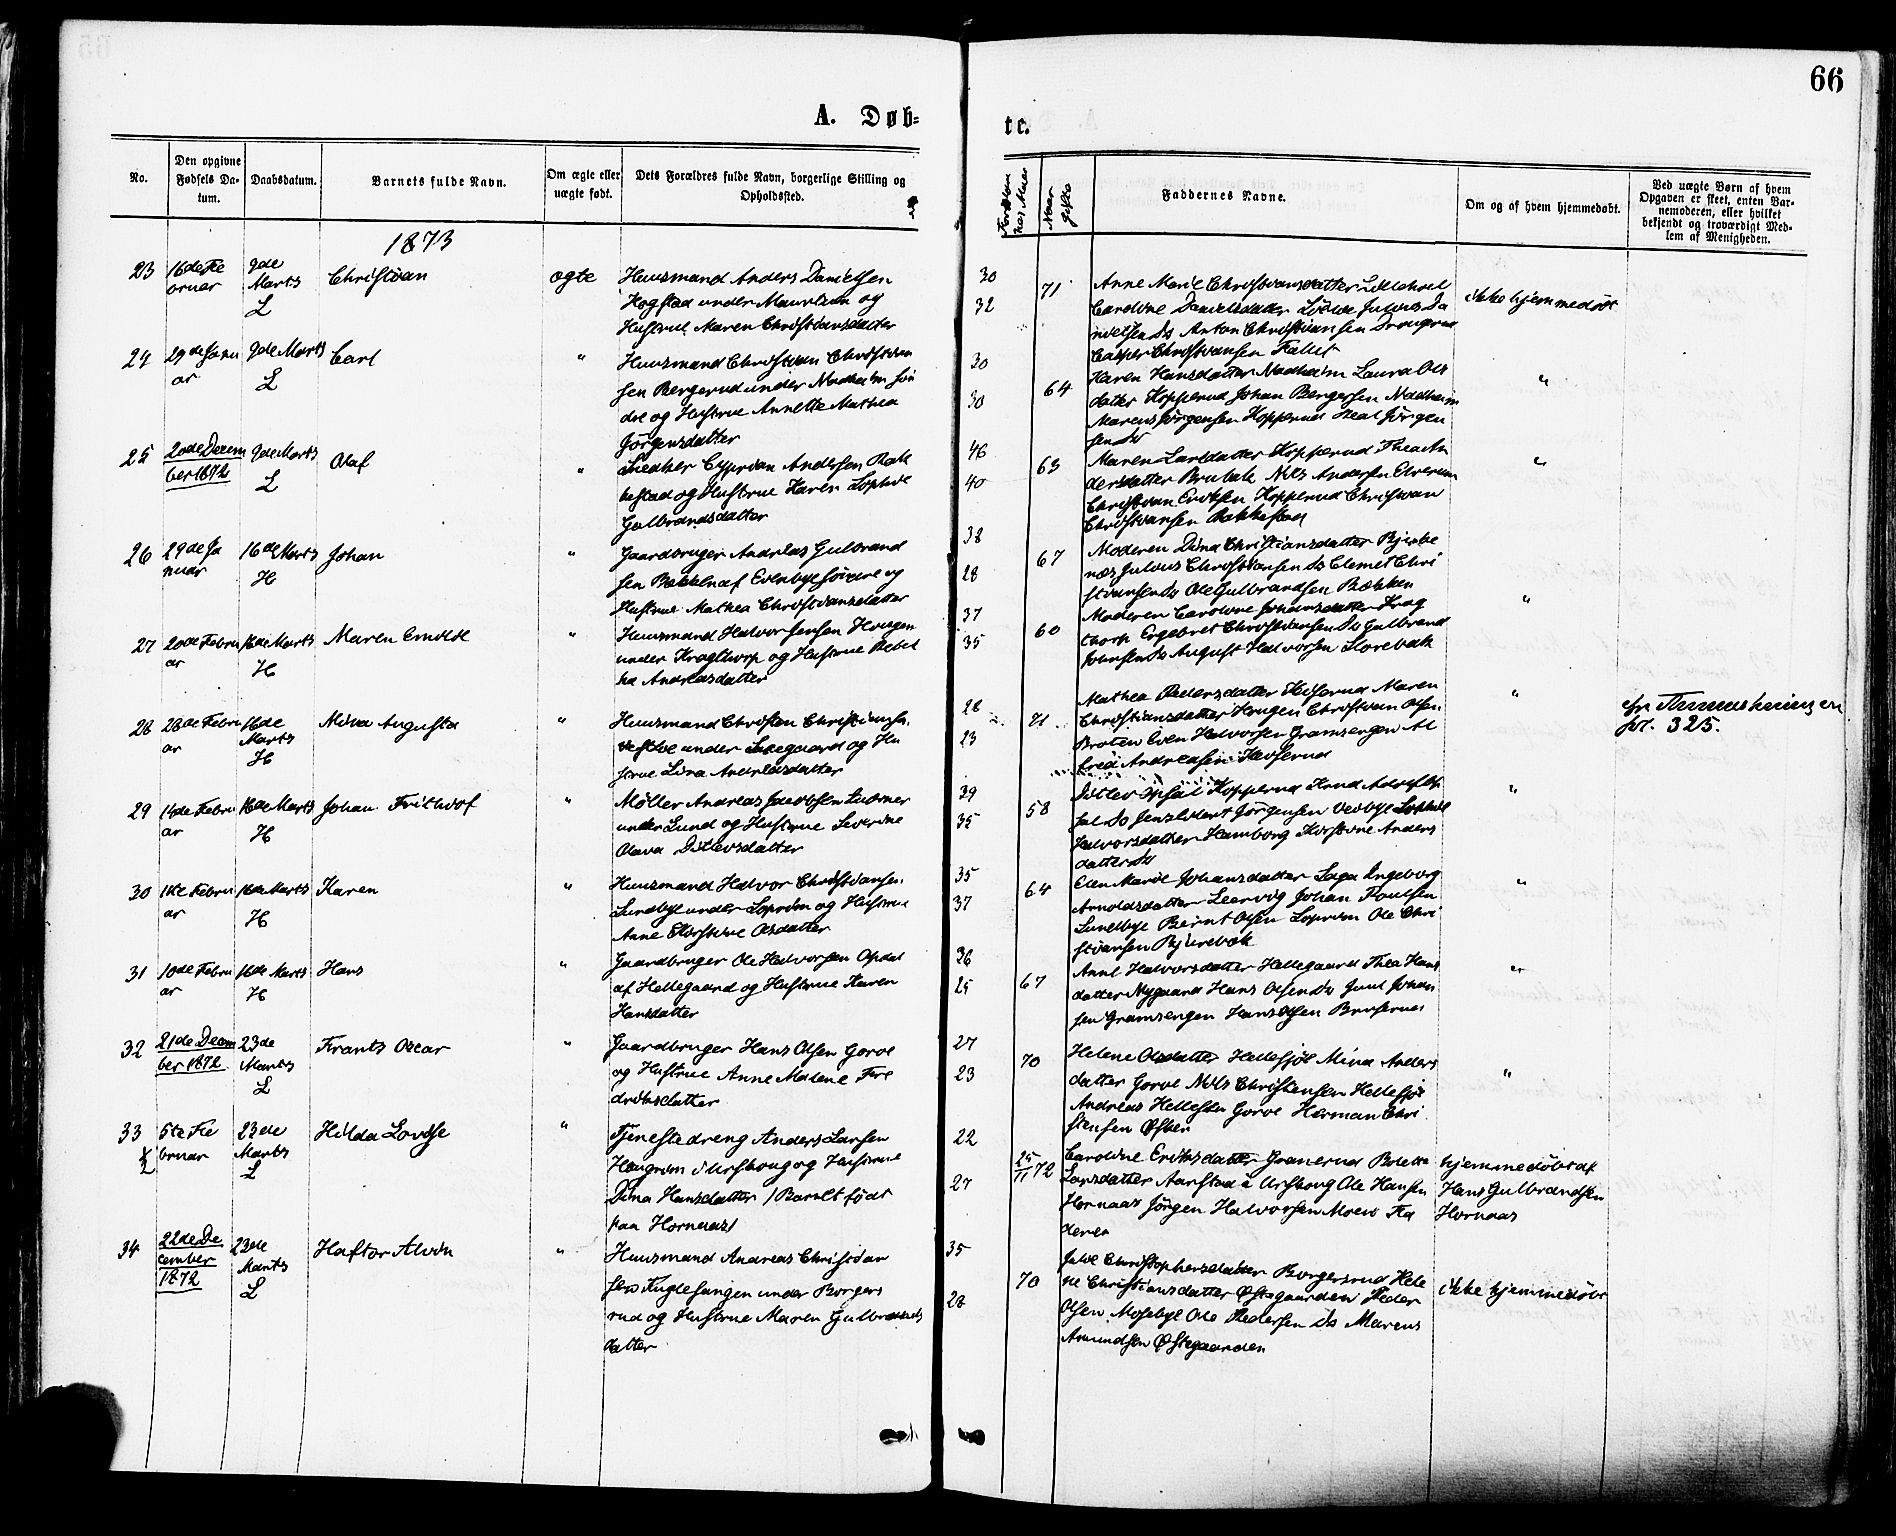 66
A. Døb-
te.
No.
Den opgivne
Fødsels Da-
tum.
Daabsdatum.
Barnets fulde Navn.
Om ægte eller
uægte født.
Dets Forældres fulde Navn, borgerlige Stilling og
Opholdssted.
Naar
gifte
Faddernes Navne.
Om og af hvem hjemmedøbt.
Ved uægte Børn af hvem
Opgaven er skeet, enten Bar-
nemoderen, eller hvilket
bekjendt og troværdigt Med-
lem af Menigheden.
1873
23
16de Fe
bruar
9de
Marts
L
Christian
ægte
Huusmand Anders Danielsen
Hogstad under Maurtun og
Hustrue Maren Christiansdatter
30
32
71
Anne Marie Christiansdatter
Caroline Danielsdatter Julius Da
nielsen Ds Anton Christiansen
Casper Christiansen
ikke hjemmedøbt
24
29de Janu
ar
9de Marts
L
Carl
"
Huusmand Christian Christian
sen Bergerud under Nadheim Søn
dre og Hustrue Annette Mathea
Jørgensdatter
30
30
64
Karen Hansdatter Nadheim Laura Ols
datter Kopperud Johan Bergersen Nadheim
Marcus Jørgensen Kopperud Jørgen
sen Ds
"
25
20de Decem
ber 1872
9de Marts
L
Olaf
"
Snedker Cyprian Andersen Rak
kestad og Hustrue Karen Sophie
Gulbrandsdatter
46
40
63
Maren Larsdatter Kopperud Thea An
dersdatter Brubak Nils Andersen
Christian Eriksen Kopperud Christian
Christiansen Rakkestad
"
26
29de Ja
nuar
16de Marts
H
Johan
"
Gaardbruger Andreas Gulbrand
sen Bækken af Evenbye søndre og
Hustrue Mathea Christiansdatter
38
28
67
Moderen Dina Christiansdatter Bjerke
næs Julius Christiansen Ds Clemet Chri
stiansen Ds Ole Gulbrandsen Bækken
"
27
20de Febru
ar
16de Marts
H
Maren Emilie
"
Huusmand Halvor Jensen Haugen
under Kragtorp og Hustrue Rebek
ka Andreasdatter
37
35
60
Moderen Caroline Johansdatter Krag
thorp Engebret Christiansen Ds Gulbrand
Johnsen Ds August Halvorsen Storebak
"
28
28de Febru
ar
16de
Marts
H
Mina Augusta
"
Huusmand Christen Christiansen
under og Hu
strue Lina Andreasdatter
28
23
71
Mathea Pedersdatter Maren
Christiansdatter Haugen Christian Olsen
Braten Even Halvorsen Gramsengen Al
fred Andreasen
pr. 325.
29
14de Febru
ar
16de Marts
H
Johan Frithiof
"
Møller Andreas Jacobsen
under Lund og Hustrue Severine
Olava Ditlevsdatter
39
35
58
Ditlev Kopperud Knud
Ds Jens Edvart Jørgensen Vedbye Sophie
Halvorsdatter Hamborg Kirstine Anders
datter Ds
"
30
1ste Febru
ar
16de Marts
H
Karen
"
Huusmand Halvor Christiansen
Lundbye under og Hustrue
Anne Kirstine Olsdatter
35
37
64
Elen Marie Johansdatter Ingeborg
Arnoldsdatter Leervig Johan Poulsen
Lundbye Bernt Olsen Ole Chri
stiansen Bjurebæk
"
31
10de Febru
ar
16de Marts
H
Hans
"
Gaardbruger Ole Halvorsen Opdal
af Hellegaard og Hustrue Karen
Hansdatter
36
25
67
Anne Halvorsdatter Hellegaard Thea Hans
datter Nygaard Hans Olsen Ds Juul Johan
sen Gramsengen Hans Olsen
"
32
21de Decem
ber 1872
23de
Marts
L
Frants Oscar
"
Gaardbruger Hans Olsen Gorve
og Hustrue Anne Malene Fre
driksdatter
27
23
70
Helene Olsdatter Hellesjøe Mina Anders
datter Gorve Nils Christensen Hellesjøe
Andreas Hellesen Gorve Herman Chri
stensen Østen
"
33
5te Fe
bruar
23de
Marts
L
Hilda Lovise
"
Tjenestedreng Anders Larsen
Haugrim i Urskoug og Hustrue
Dina Hansdatter / Barnet født
paa Hornaas /
22
27
25/11 72
Caroline Eriksdatter Granerud Bolette
Larsdatter Aarstad i Urskoug Ole Hansen
Hornaas Jørgen Halvorsen Moen Fa
deren
hjemmedøbt af
Hans Gulbrandsen
Hornaas
34
22de De
cember
1872
23de
Marts
L
Haftor Alvin
"
Huusmand Andreas Christian
sen Fuglesangen under Borgers
rud og Hustrue Maren Gulbrands
datter
35
28
70
Julie Christophersdatter Borgersrud Hele
ne Christiansdatter Østegaarden Peder
Olsen Mosebye Ole Pedersen Ds Marcus
Amundsen Østegaarden
ikke hjemmedøbt